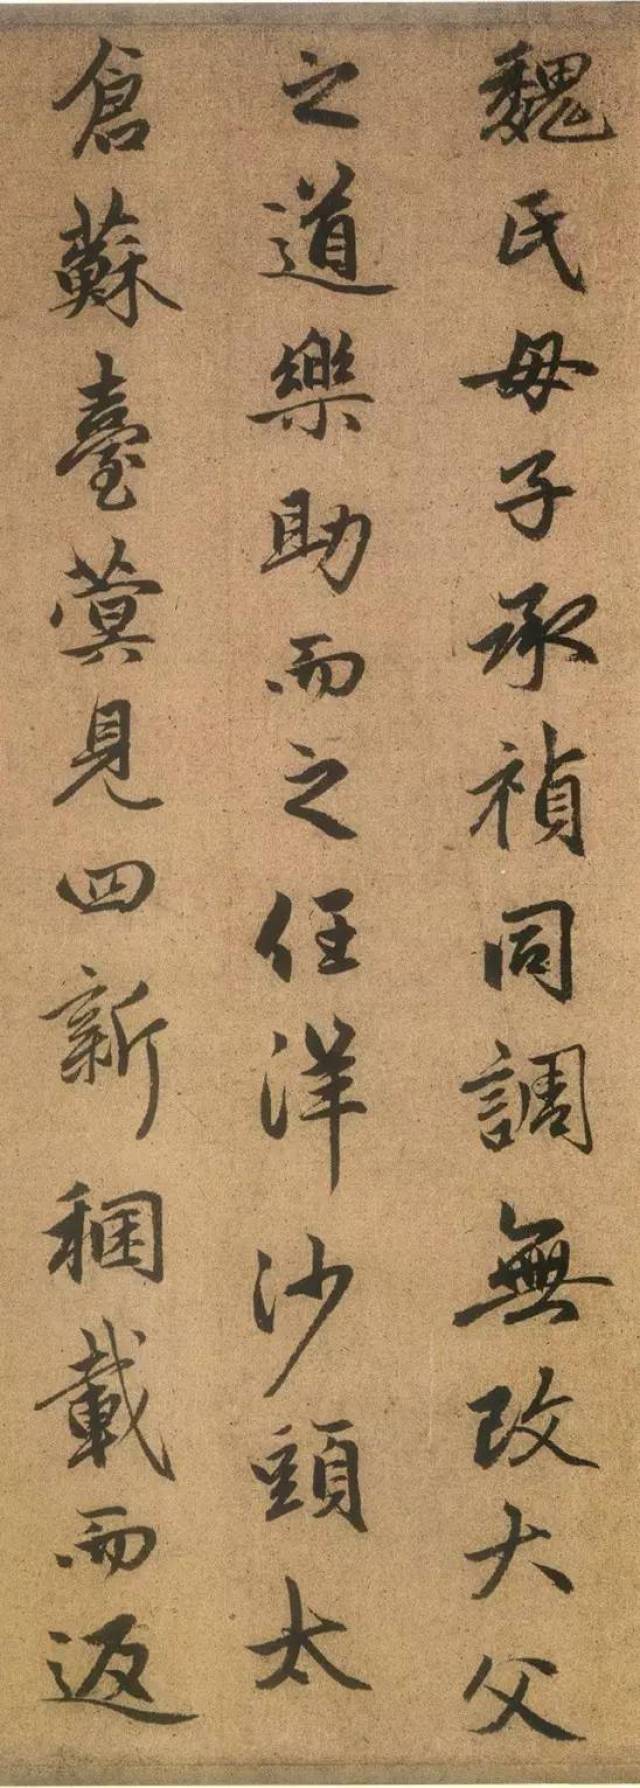 魏氏母子承禎同調無改大父
之道樂助而之任洋沙頭太
倉蘇臺蓂見四新稇載而返